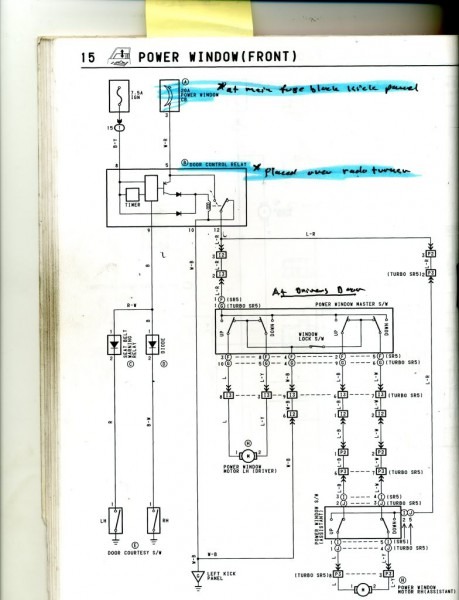 15 POWER WINDOW(FRONT)
7.5A
IGN
A
20A
POWER WINDOW
CB
*at main fuse block kick panel
15
B-Y
2
L
8
5
B DOOR CONTROL RELAY
* placed over radio turner
TIMER
6
9
10
12
L-R
(TURBO SR5)
R-W
At Drivers Door
(SR5)
(TURBO SR5)
POWER WINDOW MASTER S/W
UP
DOWN
WINDOW
LOCK S/W
UP
DOWN
SEAT BELT
WARNING
RELAY
C
DIODE
D
(SR5)
(TURBO SR5)
(TURBO SR5)
R
B-W
W-B
L
L-Y
H
M
POWER WINDOW
MOTOR LH (DRIVER)
(TURBO SR5)
POWER WINDOW S/W
(ASSISTANT)
(SR5)
(TURBO SR5)
UP
DOWN
LH
RH
E
DOOR COURTESY S/W
W-B
LEFT KICK
PANEL
(SR5)
(TURBO SR5)
(TURBO SR5)
H
M
POWER WINDOW
MOTOR RH(ASSISTANT)